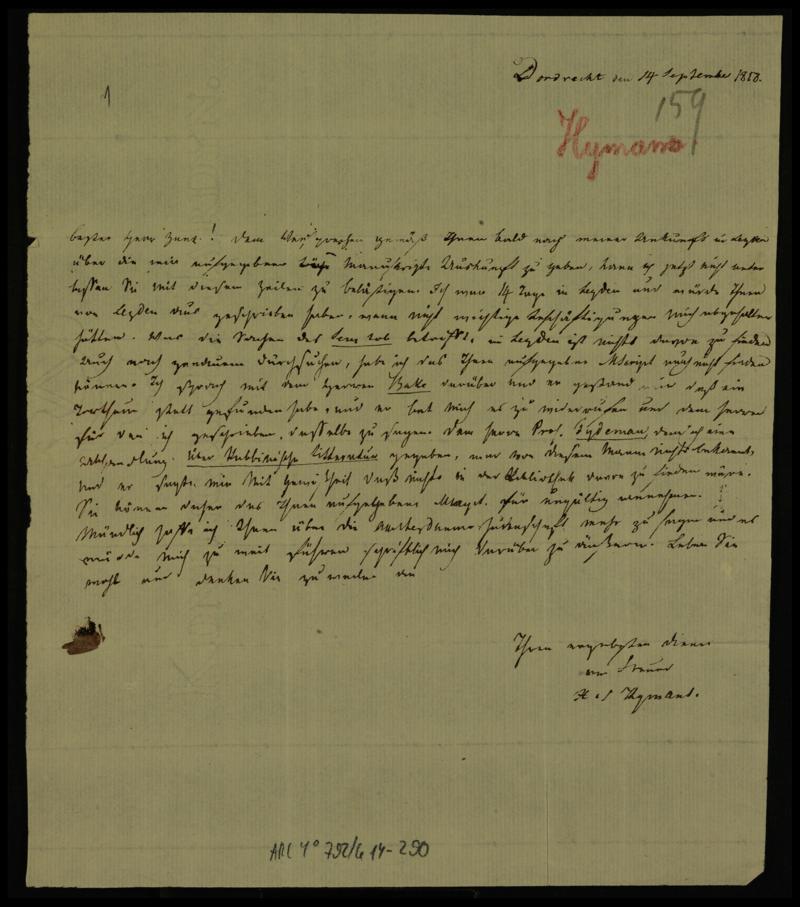 1
Dordrecht den 14 September 1818.
159
Hymans
bester Herr Zunz! Dem Versprechen gemäß Ihnen bald nach meiner Ankunft in Leyden
über die mir aufgegebenen Manuskripte Auskunft zu geben, kann ich jetzt nicht unter
lassen Sie mit diesen Zeilen zu belästigen. Ich war 14 Tage in Leyden und würde Ihnen
von Leyden aus geschrieben haben, wenn nicht wichtige Beschäftigungen mich abgehalten
hätten. Was die Sachen des Sem tob betrifft, in Leyden ist nichts davon zu finden
Auch nach genauem Durchsuchen, habe ich das Ihnen aufgegebne Mscript auch nicht finden
können. Ich sprach mit dem Herren Bake darüber und er gestand mir daß ein
Irrthum statt gefunden habe, und er bat mich es zu widerrufen und dem Herren
für den ich geschrieben, dasselbe zu sagen. Dem Herrn Prof. Tydeman, dem ich eine
Abhandlung über Rabbinische Litteratur gegeben, war von diesem Mann nichts bekannt,
und er sagte mir mit Gewißheit daß nichts in der Bibliothek davon zu finden wäre.
Sie können daher das Ihnen aufgegebene Mscpt. für ungültig annehmen.
Mündlich hoffe ich Ihnen über die Amsterdamer Judenschaft mehr zu sagen und es
würde mich zu weit führen schriftlich mich darüber zu äußern. Leben Sie
wohl und denken Sie zuweilen an
Ihren ergebsten Diener
und Freund
H. S. Hymans.
ARC 4° 792/G 14-290